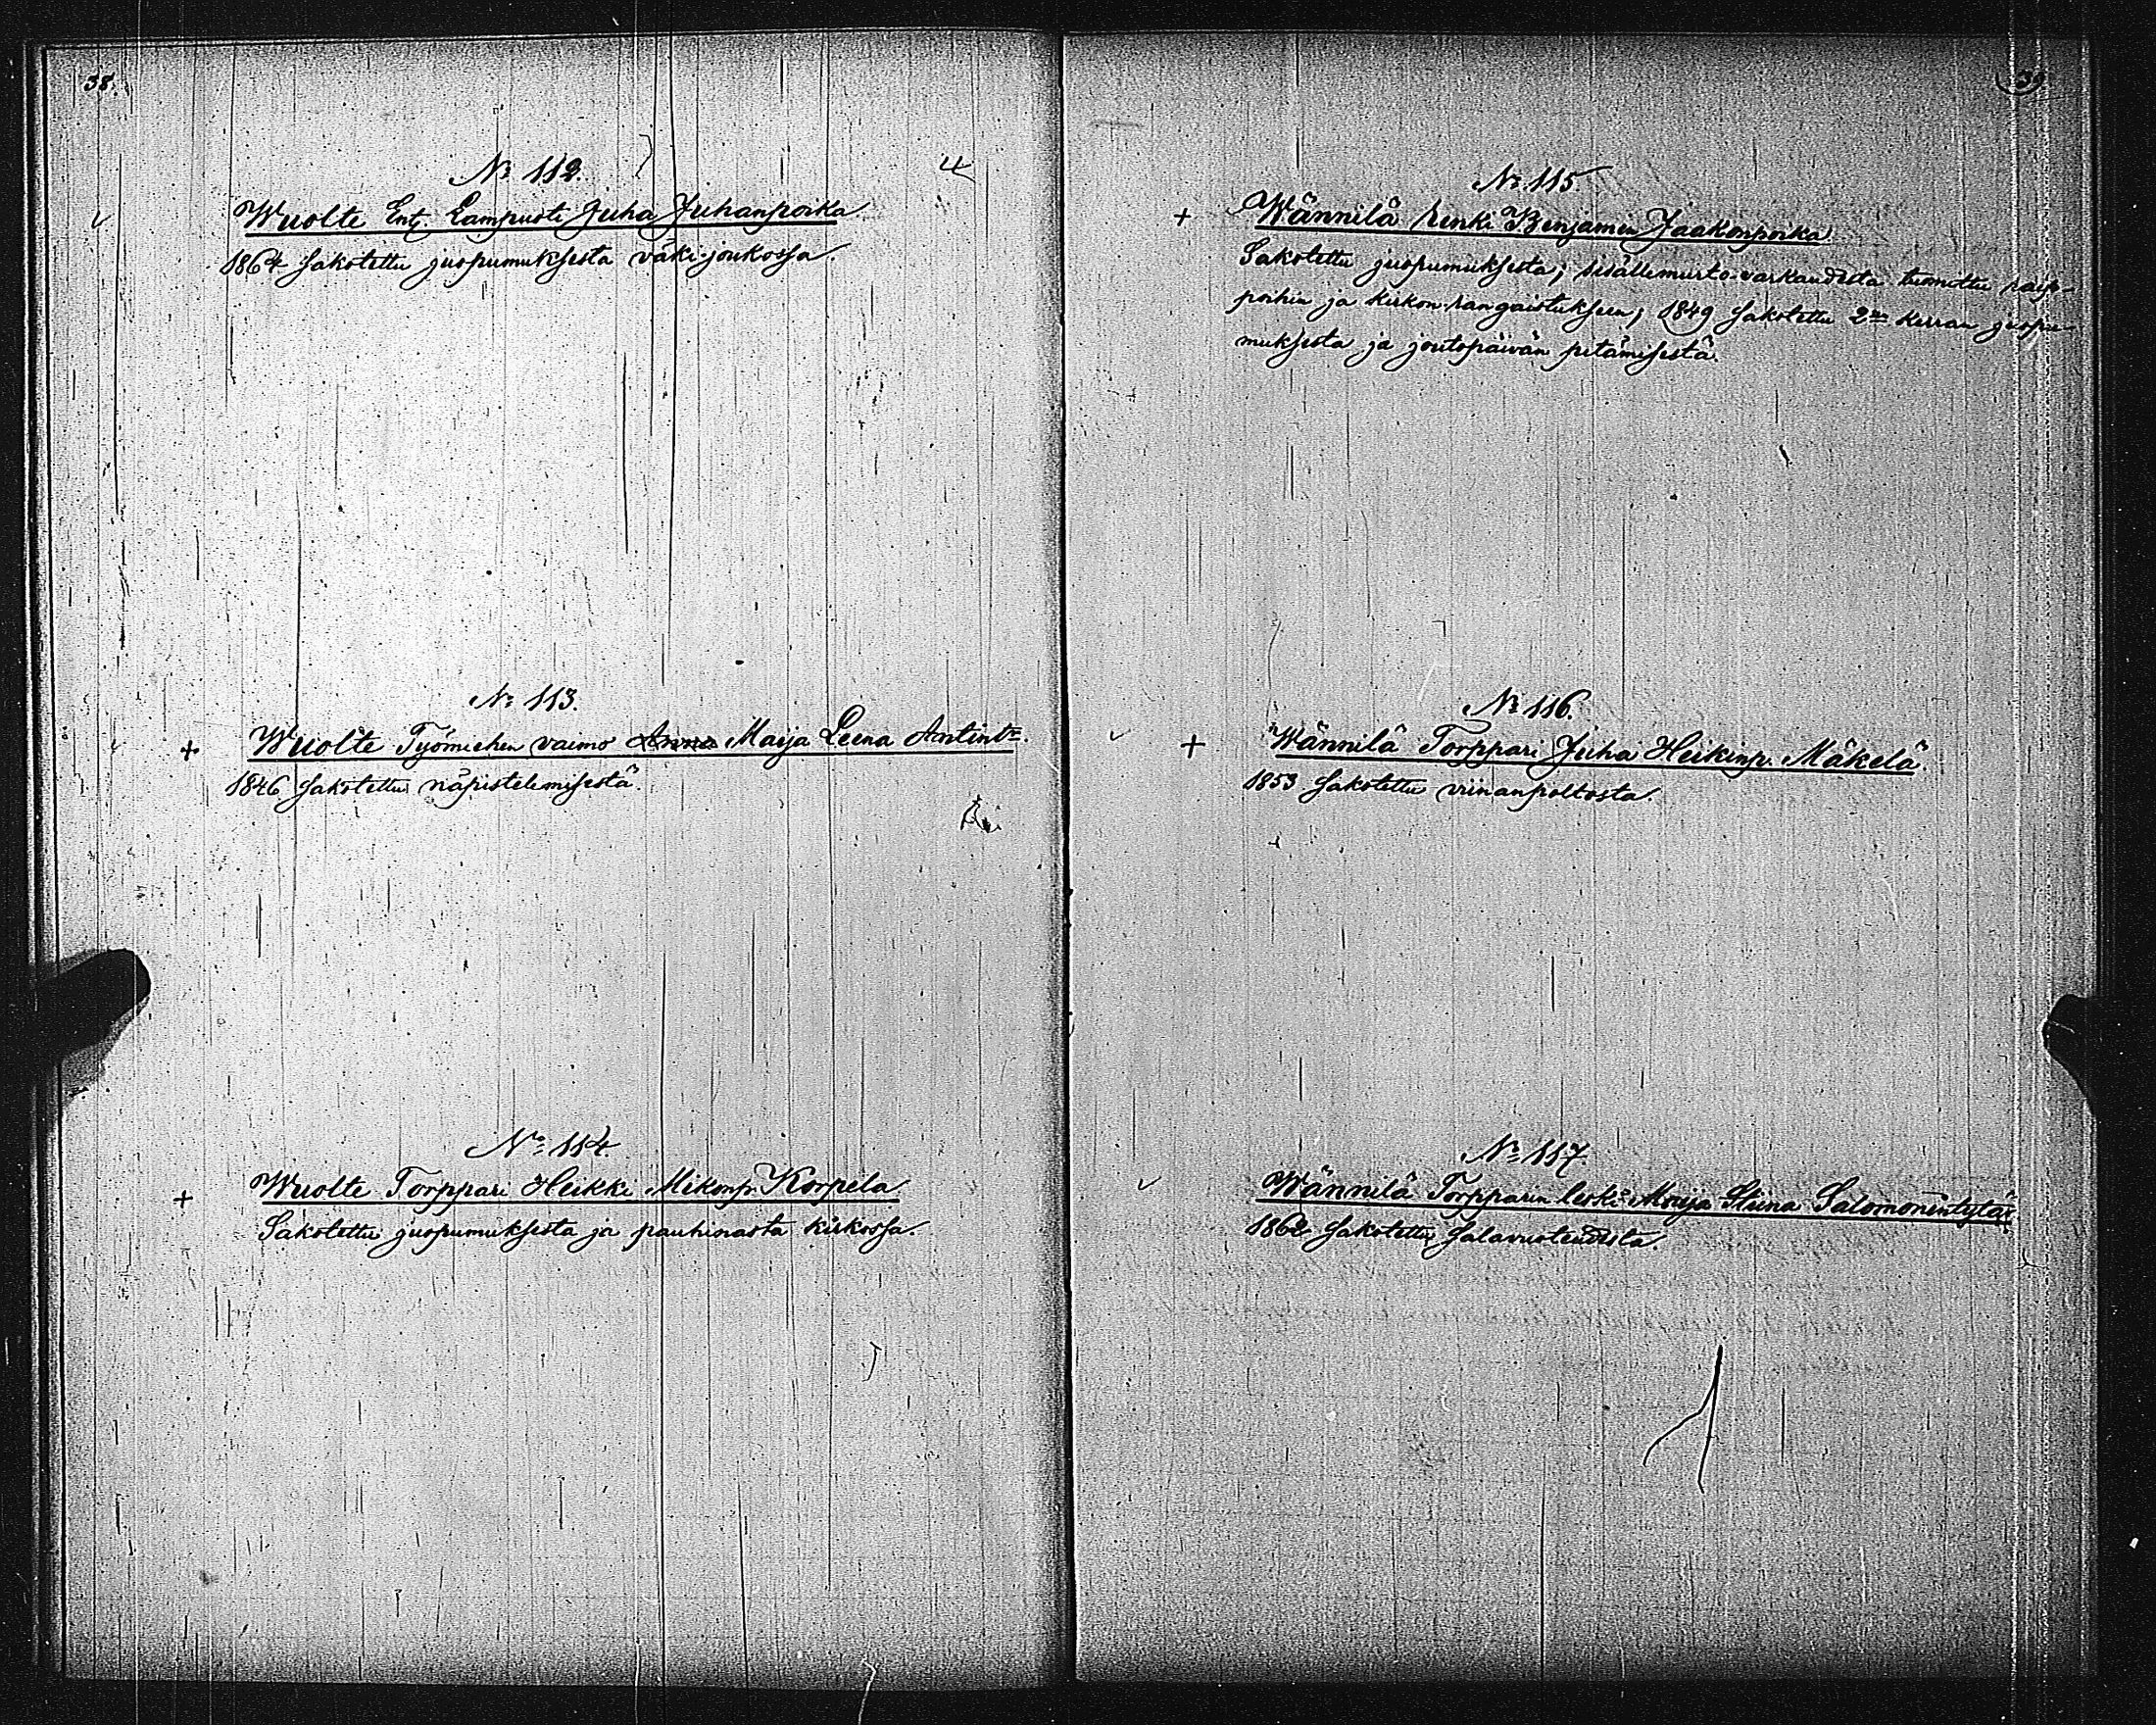 38.
№ 112.
Wuolte Ent. Lampuoti Juha Juhanpoika
1864 sakotettu juopumuksesta väki-joukossa.
№ 113.
+ Wuolte Työmiehen vaimo Anna Maija Leena Antintr.
1846 sakotettu näpistelemisestä.
№ 114.
+ Wuolte Torppari Heikki Mikonp. Korpela
Sakotettu juopumuksesta ja pauhinasta kirkossa.
39
№ 115
+ Wännilä renki Benjamin Jaakonpoika
Sakotettu juopumuksesta; sisällemurto-varkaudesta tuomittu raip-
poihin ja kirkon-rangaistukseen; 1849 sakotettu 2:en kerran juopu-
muksesta ja joutopäivän pitämisestä.
№ 116.
+ Wännilä Torppari Juha Heikinp. Mäkelä.
1853 sakotettu viinanpoltosta.
№ 117.
Wännilä Torpparin leski Maija Stiina Salomonintytär
1862 sakotettu salavuoteudesta.